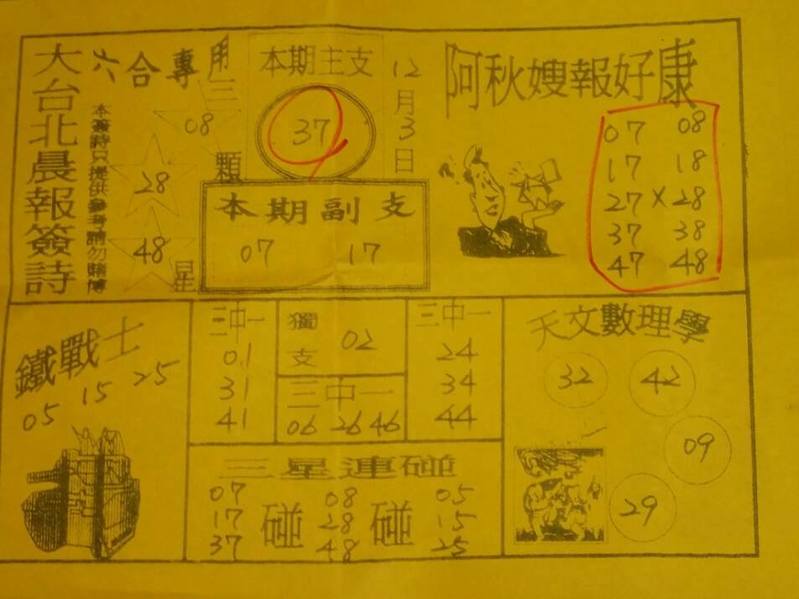 大台北晨報簽詩
六合專用
本簽詩只提供參考請勿賭博
三顆星
08
28
48
本期主支
37
12月3日
本期副支
07 17
阿秋嫂報好康
07 08
17 18
27 × 28
37 38
47 48
鐵戰士
05 15 25
三中一
01
31
41
獨支
02
三中一
06 26 46
三中一
24
34
44
三星連碰
07 08 05
17 碰 28 碰 15
37 48 25
天文數理學
32 42
09
29